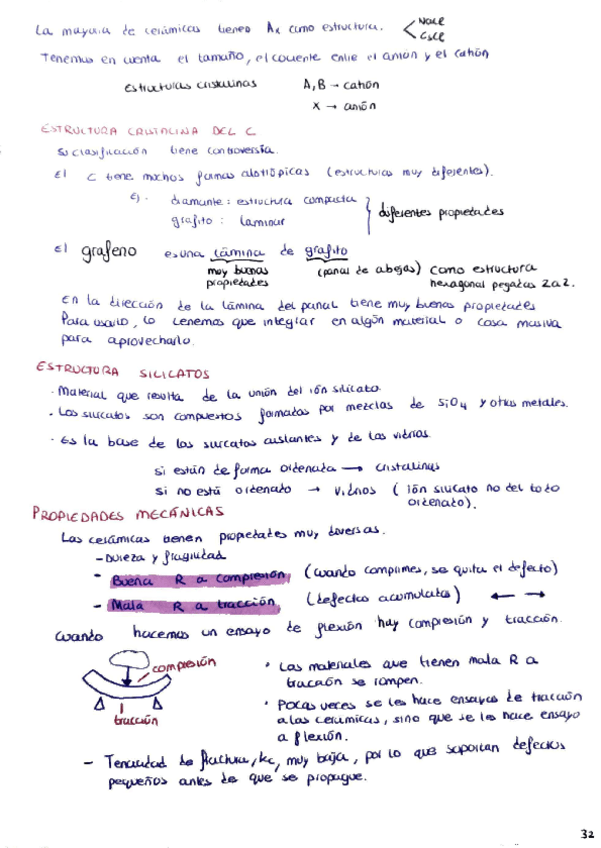 La mayoría de cerámicas tienen Ax como estructura. < NaCl
CsCl
Tenemos en cuenta el tamaño, el cociente entre el anión y el catión
estructuras cristalinas A, B → catión
X → anión
ESTRUCTURA CRISTALINA DEL C
Su clasificación tiene controversia.
El C tiene muchos formas alotrópicas (estructuras muy diferentes).
Ej. diamante: estructura compacta
grafito: laminar
diferentes propiedades
El grafeno es una lámina de grafito
muy buenas propiedades
(panal de abejas) como estructura
hexagonal pegadas 2 a 2.
En la dirección de la lámina del panal tiene muy buenas propiedades
Para usarlo, lo tenemos que integrar en algún material o cosa masiva
para aprovecharlo.
ESTRUCTURA SILICATOS
· Material que resulta de la unión del ión silicato.
· Los silicatos son compuestos formados por mezclas de SiO4 y otros metales.
· Es la base de los silicatos aislantes y de los vidrios.
si están de forma ordenada → cristalinas
si no está ordenado → vidrios (ión silicato no del todo
ordenado).
PROPIEDADES MECÁNICAS
Las cerámicas tienen propiedades muy diversas.
- Dureza y fragilidad
- Buena R a compresión (cuando comprimes, se quita el defecto)
- Mala R a tracción (defectos acumulados) ← →
Cuando hacemos un ensayo de flexión hay compresión y tracción.
compresión
tracción
· Los materiales que tienen mala R a
tracción se rompen.
· Pocas veces se les hace ensayos de tracción
a las cerámicas, sino que se les hace ensayo
a flexión.
- Tenacidad de fractura, kc, muy baja, por lo que soportan defectos
pequeños antes de que se propague.
32